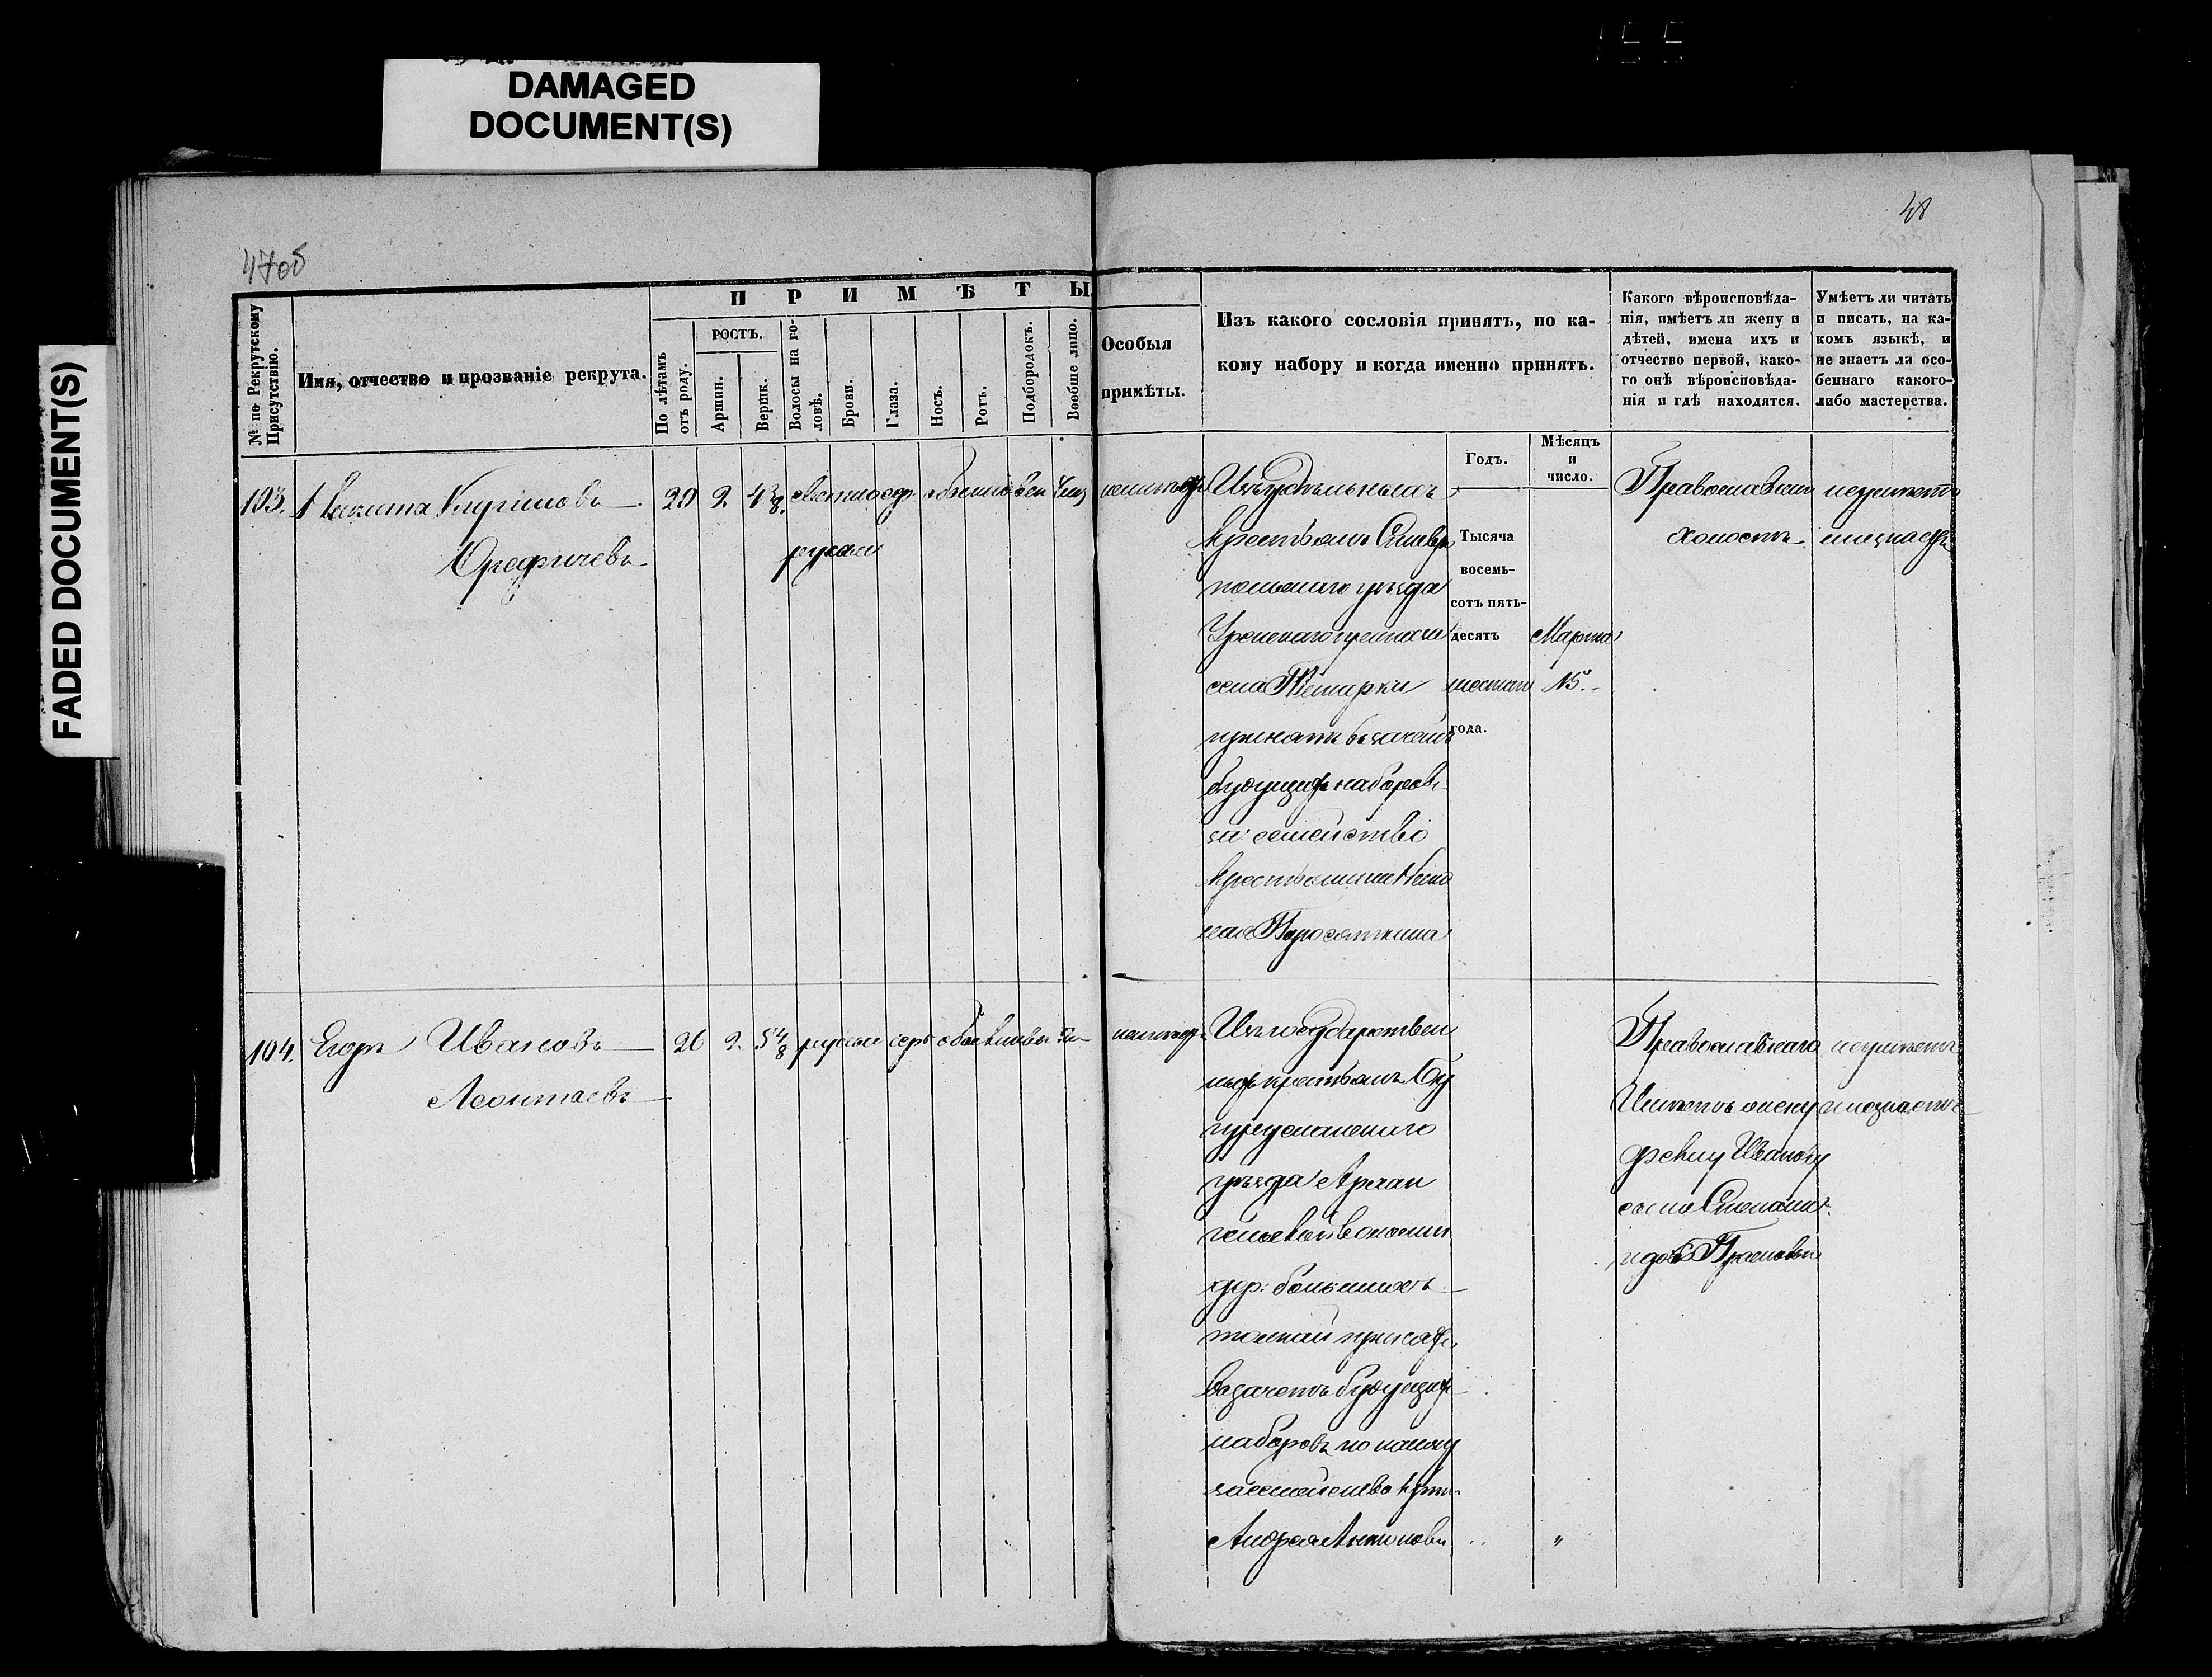 DAMAGED
DOCUMENT(S)
FADED DOCUMENT(S)
47об
48
№ по Рекрутскому Присутствію.
Имя, отчество и прозваніе рекрута.
ПРИМѢТЫ
По лѣтамъ отъ роду.
РОСТЪ.
Аршин.
Вершк.
Волосы на головѣ.
Брови.
Глаза.
Носъ.
Ротъ.
Подбородокъ.
Вообще лицо.
Особыя
примѣты.
Изъ какого сословія принятъ, по ка-
кому набору и когда именно принятъ.
Годъ.
Мѣсяцъ
и
число.
Какого вѣроисповѣда-
нія, имѣетъ ли жену и
дѣтей, имена ихъ и
отчество первой, како-
го онѣ вѣроисповѣда-
нія и гдѣ находятся.
Умѣетъ ли читать
и писать, на ка-
комъ языкѣ, и
не знаетъ ли осо-
беннаго какого-
либо мастерства.
103. Никита Кириловъ
20 2. 4 3/8. светло сер. обыкновен чис
русые
Изъ удѣльныхъ
крестьянъ Ставро
польскаго уѣзда
села
принятъ въ зачетъ
будущихъ наборовъ
за семейство
крестьянина
Поросяткина
Тысяча
восемь-
сотъ пять-
десятъ
шестаго
года.
Марта
15.
Православнаго
холостъ
неумѣетъ
незнаетъ
104. Егоръ Ивановъ
Леонтьевъ
26 2. 5 4/8 русые серы обыкновен
Изъ государствен
ныхъ крестьянъ Бу
гурусланскаго
уѣзда Архан
гельской волости
дер:
принятъ
въ зачетъ будущихъ
наборовъ по найму
за семейство
Андрея
"
Православнаго
Имѣетъ жену
Иванову
сына Степана
неумѣетъ
незнаетъ